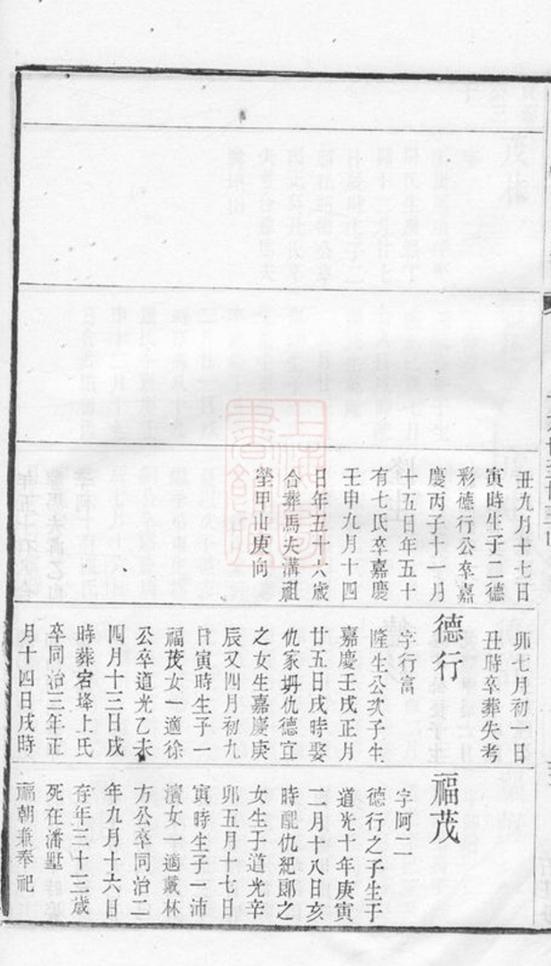 丑九月十七日
寅時生子二德
彩德行公卒嘉
慶丙子十一月
十五日年五十
有七氏卒嘉慶
壬申九月十四
日年五十六歲
合葬馬夫溝祖
塋甲山庚向
卯七月初一日
丑時卒葬失考
德行
字行富
隆生公次子生
嘉慶壬戌正月
廿五日戌時娶
仇家坍仇德宜
之女生嘉慶庚
辰又四月初九
日寅時生子一
福茂女一適徐
公卒道光乙未
四月十三日戌
時葬宕塝上氏
卒同治三年正
月十四日戌時
福茂
字阿二
德行之子生于
道光十年庚寅
二月十八日亥
時配仇紀郎之
女生于道光辛
卯五月十七日
寅時生子一沛
濱女一適戴林
方公卒同治二
年九月十六日
存年三十三歲
死在潘墅
福朝兼奉祀